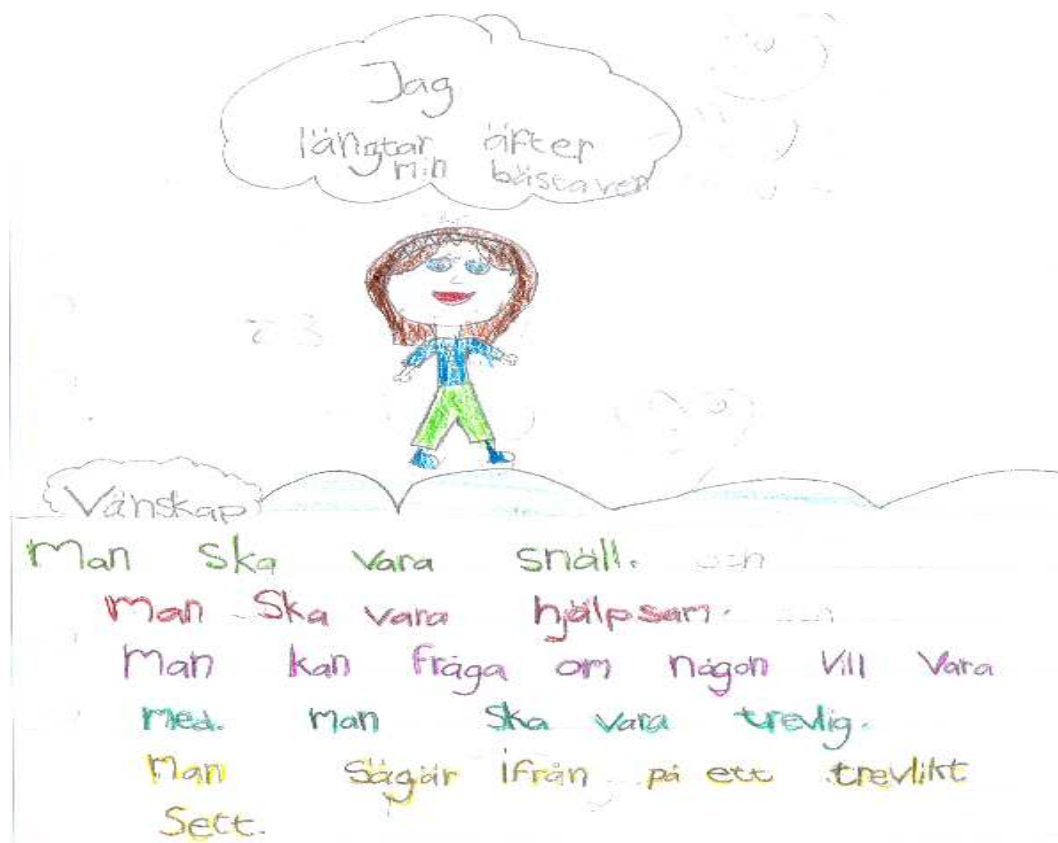 Jag
längtar äfter
min bästaven
Vänskap
Man ska vara snäll. och
Man ska vara hjälpsam.
Man kan fråga om någon vill vara
med. man ska vara trevlig.
Man sägär ifrån på ett trevlikt
sett.